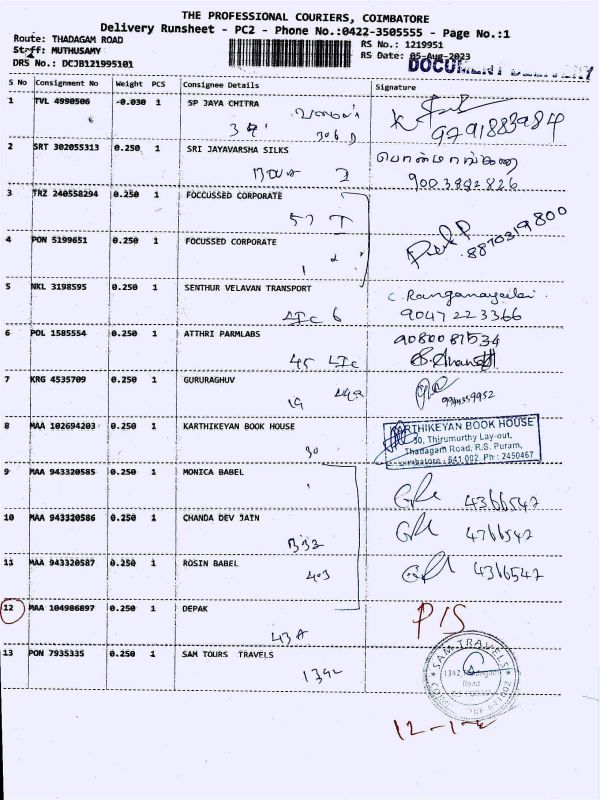 THE PROFESSIONAL COURIERS, COIMBATORE
Delivery Runsheet - PC2 - Phone No.:0422-3505555 - Page No.:1
Route: THADAGAM ROAD RS No.: 1219951
Staff: MUTHUSAMY RS Date: 05-Aug-2023
DRS No.: DCJB121995101 DOCUMENT DELIVERY
S No Consignment No Weight PCS Consignee Details Signature
1 TVL 4990506 -0.030 1 SP JAYA CHITRA
306 D 9791883984
2 SRT 302055313 0.250 1 SRI JAYAVARSHA SILKS
9003892826
3 TRZ 240558294 0.250 1 FOCCUSSED CORPORATE
57 I
4 PON 5199651 0.250 1 FOCUSSED CORPORATE 8870319800
5 NKL 3198595 0.250 1 SENTHUR VELAVAN TRANSPORT C. Ranganayaki
LIC 6 9047223366
6 POL 1585554 0.250 1 ATTHRI PARMLABS 9080081534
45 LIC
7 KRG 4535709 0.250 1 GURURAGHUV
19
8 MAA 102694203 0.250 1 KARTHIKEYAN BOOK HOUSE KARTHIKEYAN BOOK HOUSE
30, Thirumurthy Lay-out,
Thadagam Road, R.S. Puram,
30 Coimbatore - 641 002. Ph : 2450467
9 MAA 943320585 0.250 1 MONICA BABEL
4366547
10 MAA 943320586 0.250 1 CHANDA DEV JAIN
B332 4366547
11 MAA 943320587 0.250 1 ROSIN BABEL
403 4366547
12 MAA 104986897 0.250 1 DEPAK P/S
43A
13 PON 7935335 0.250 1 SAM TOURS TRAVELS
1342
SAM TRAVELS
1342, Thadagam
Road
641 002